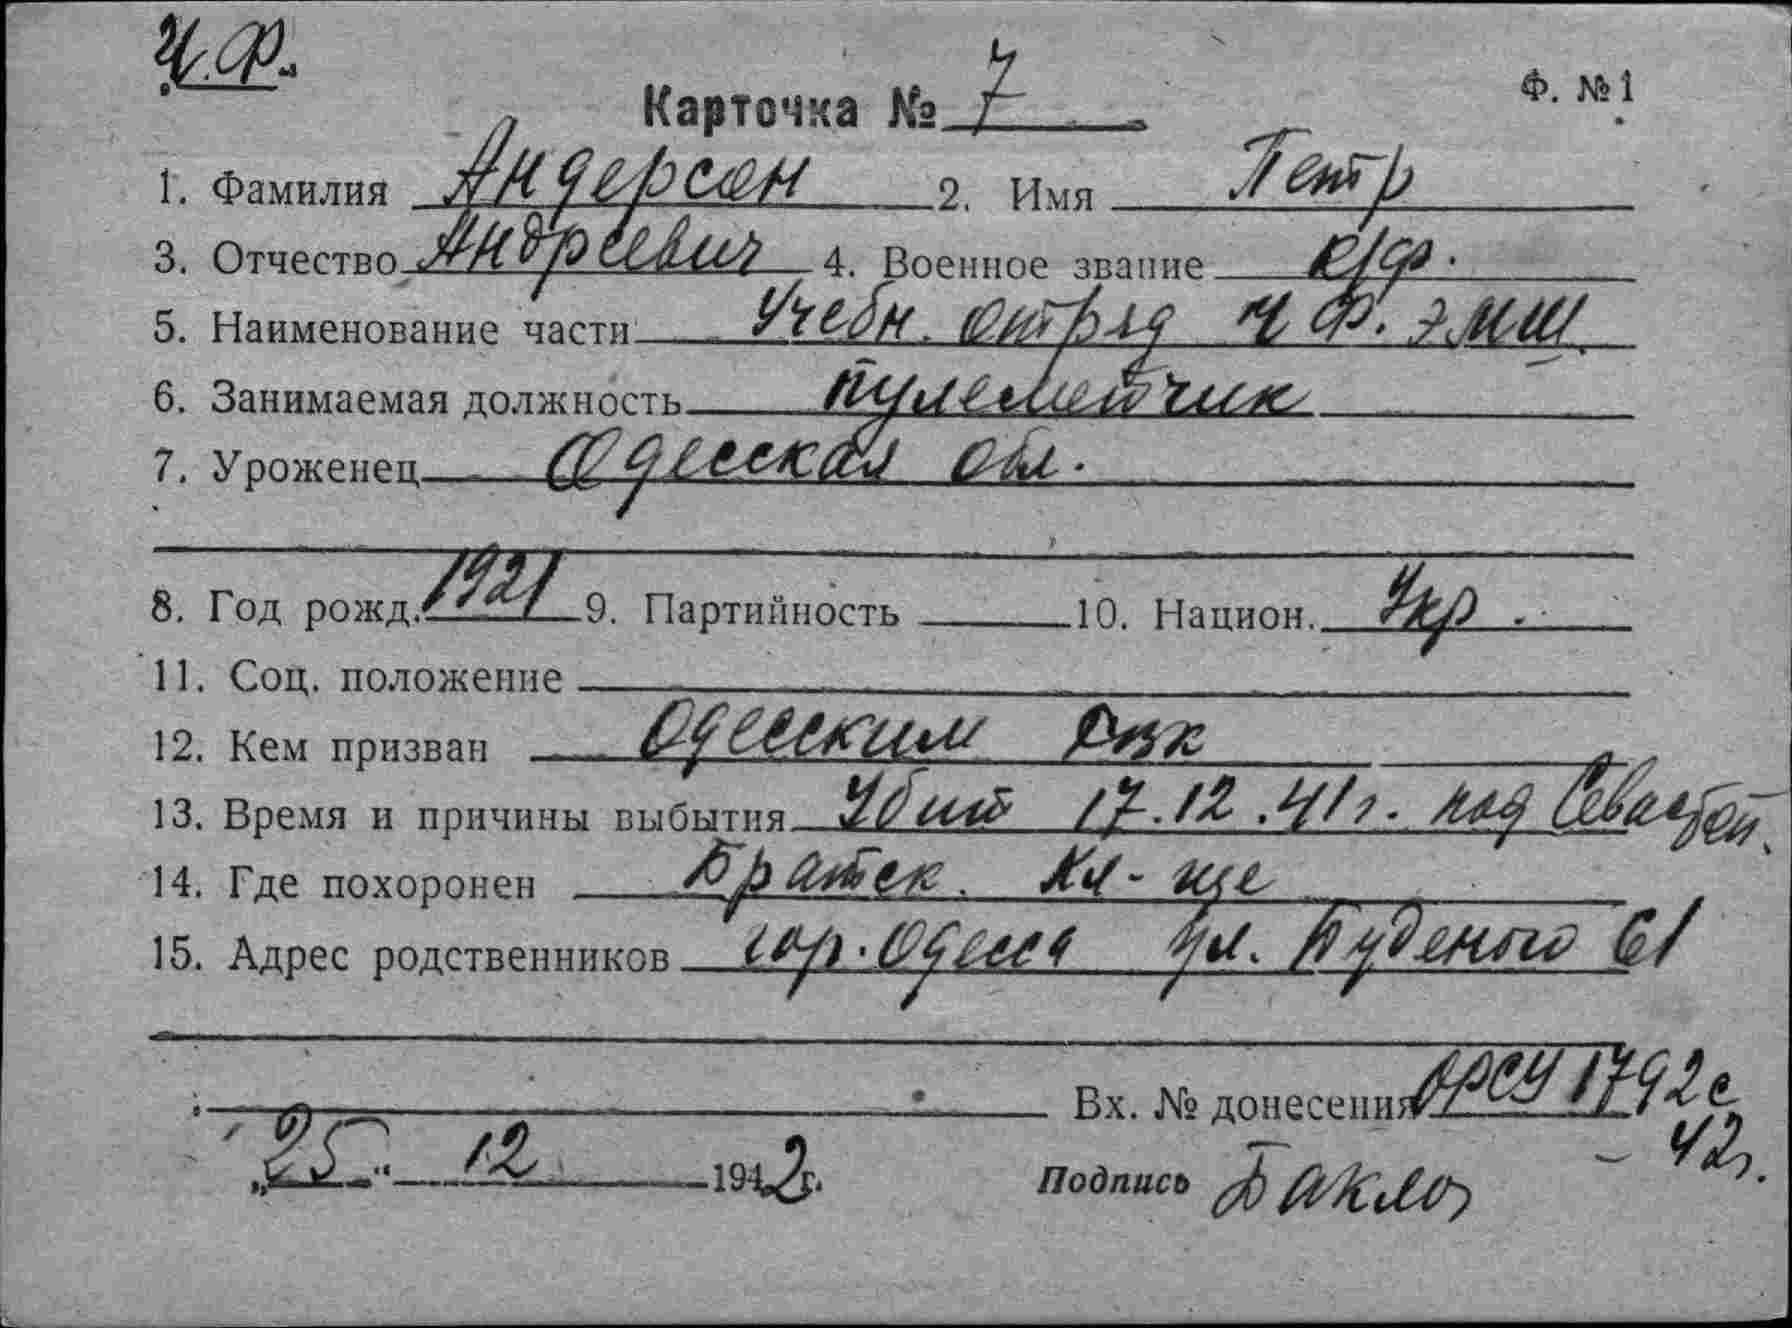 Ч.Ф.
Карточка № 7 Ф. №1
1. Фамилия Андерсон 2. Имя Петр
3. Отчество Андреевич 4. Военное звание к/ф.
5. Наименование части Учебн. Отряд Ч.Ф. ЭМШ
6. Занимаемая должность пулеметчик
7. Уроженец Одесская обл.
8. Год рожд. 1921 9. Партийность 10. Национ. Укр.
11. Соц. положение
12. Кем призван Одесским Рвк
13. Время и причины выбытия Убит 17.12.41г. под Севастоп.
14. Где похоронен Братск. Кл-ще
15. Адрес родственников гор. Одесса ул. 61
Вх. № донесения 1792с
- 42г.
„25" 12 1942г. Подпись